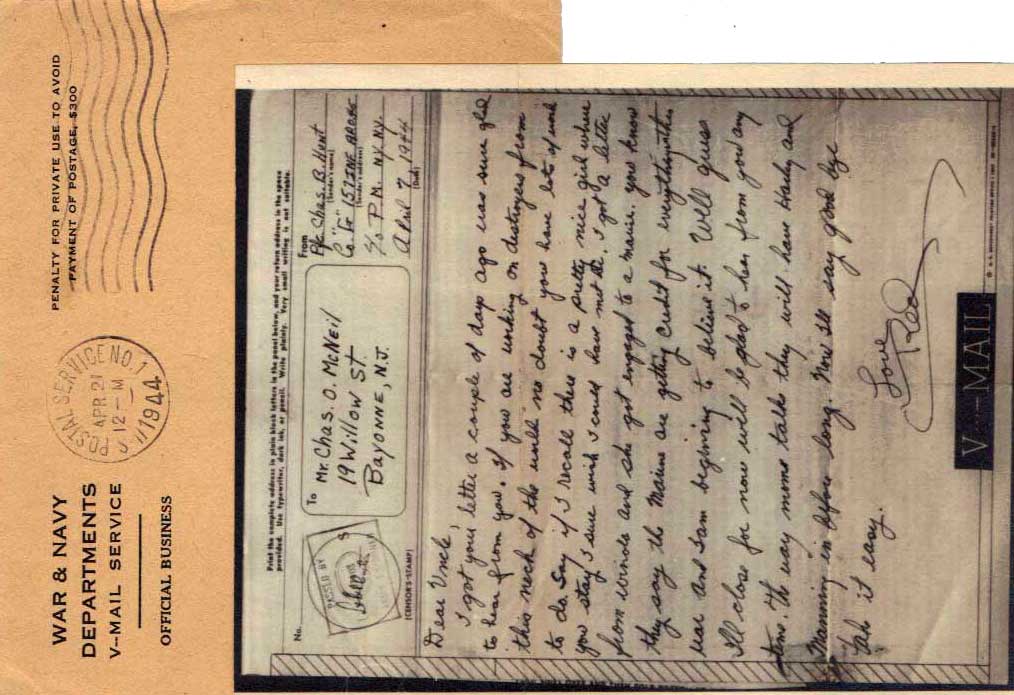 WAR & NAVY
DEPARTMENTS
V--MAIL SERVICE
OFFICIAL BUSINESS
POSTAL SERVICE NO. 1
APR 21
12 - M
1944
PENALTY FOR PRIVATE USE TO AVOID
PAYMENT OF POSTAGE, $300
Print the complete address in plain block letters in the panel below, and your return address in the space
provided. Use typewriter, dark ink, or pencil. Write plainly. Very small writing is not suitable.
No.
PASSED BY
S
(CENSOR'S STAMP)
To
Mr. Chas. O. McNeil
19 Willow St
Bayonne, N.J.
From
Pfc. Chas. B. Hunt
(Sender's name)
Co. "F" 157 INF APO 45
(Sender's address)
c/o P.M. N.Y. N.Y.
April 7, 1944
(Date)
Dear Uncle,
I got your letter a couple of days ago was sure glad
to hear from you. If you are working on destroyers from
this neck of the will no doubt you have lots of work
to do. Say if I recall there is a pretty nice girl where
you stay, I sure wish I could have met her. I got a letter
from and she got engaged to a marine. You know
they say the Marines are getting credit for everything
and I am beginning to believe it. Well guess
I'll close for now will be glad to hear from you any
time. The way momo talk they will have Harky and
Manning in before long. Now I'll say good bye
Take it easy.
Love
Red
V···–MAIL